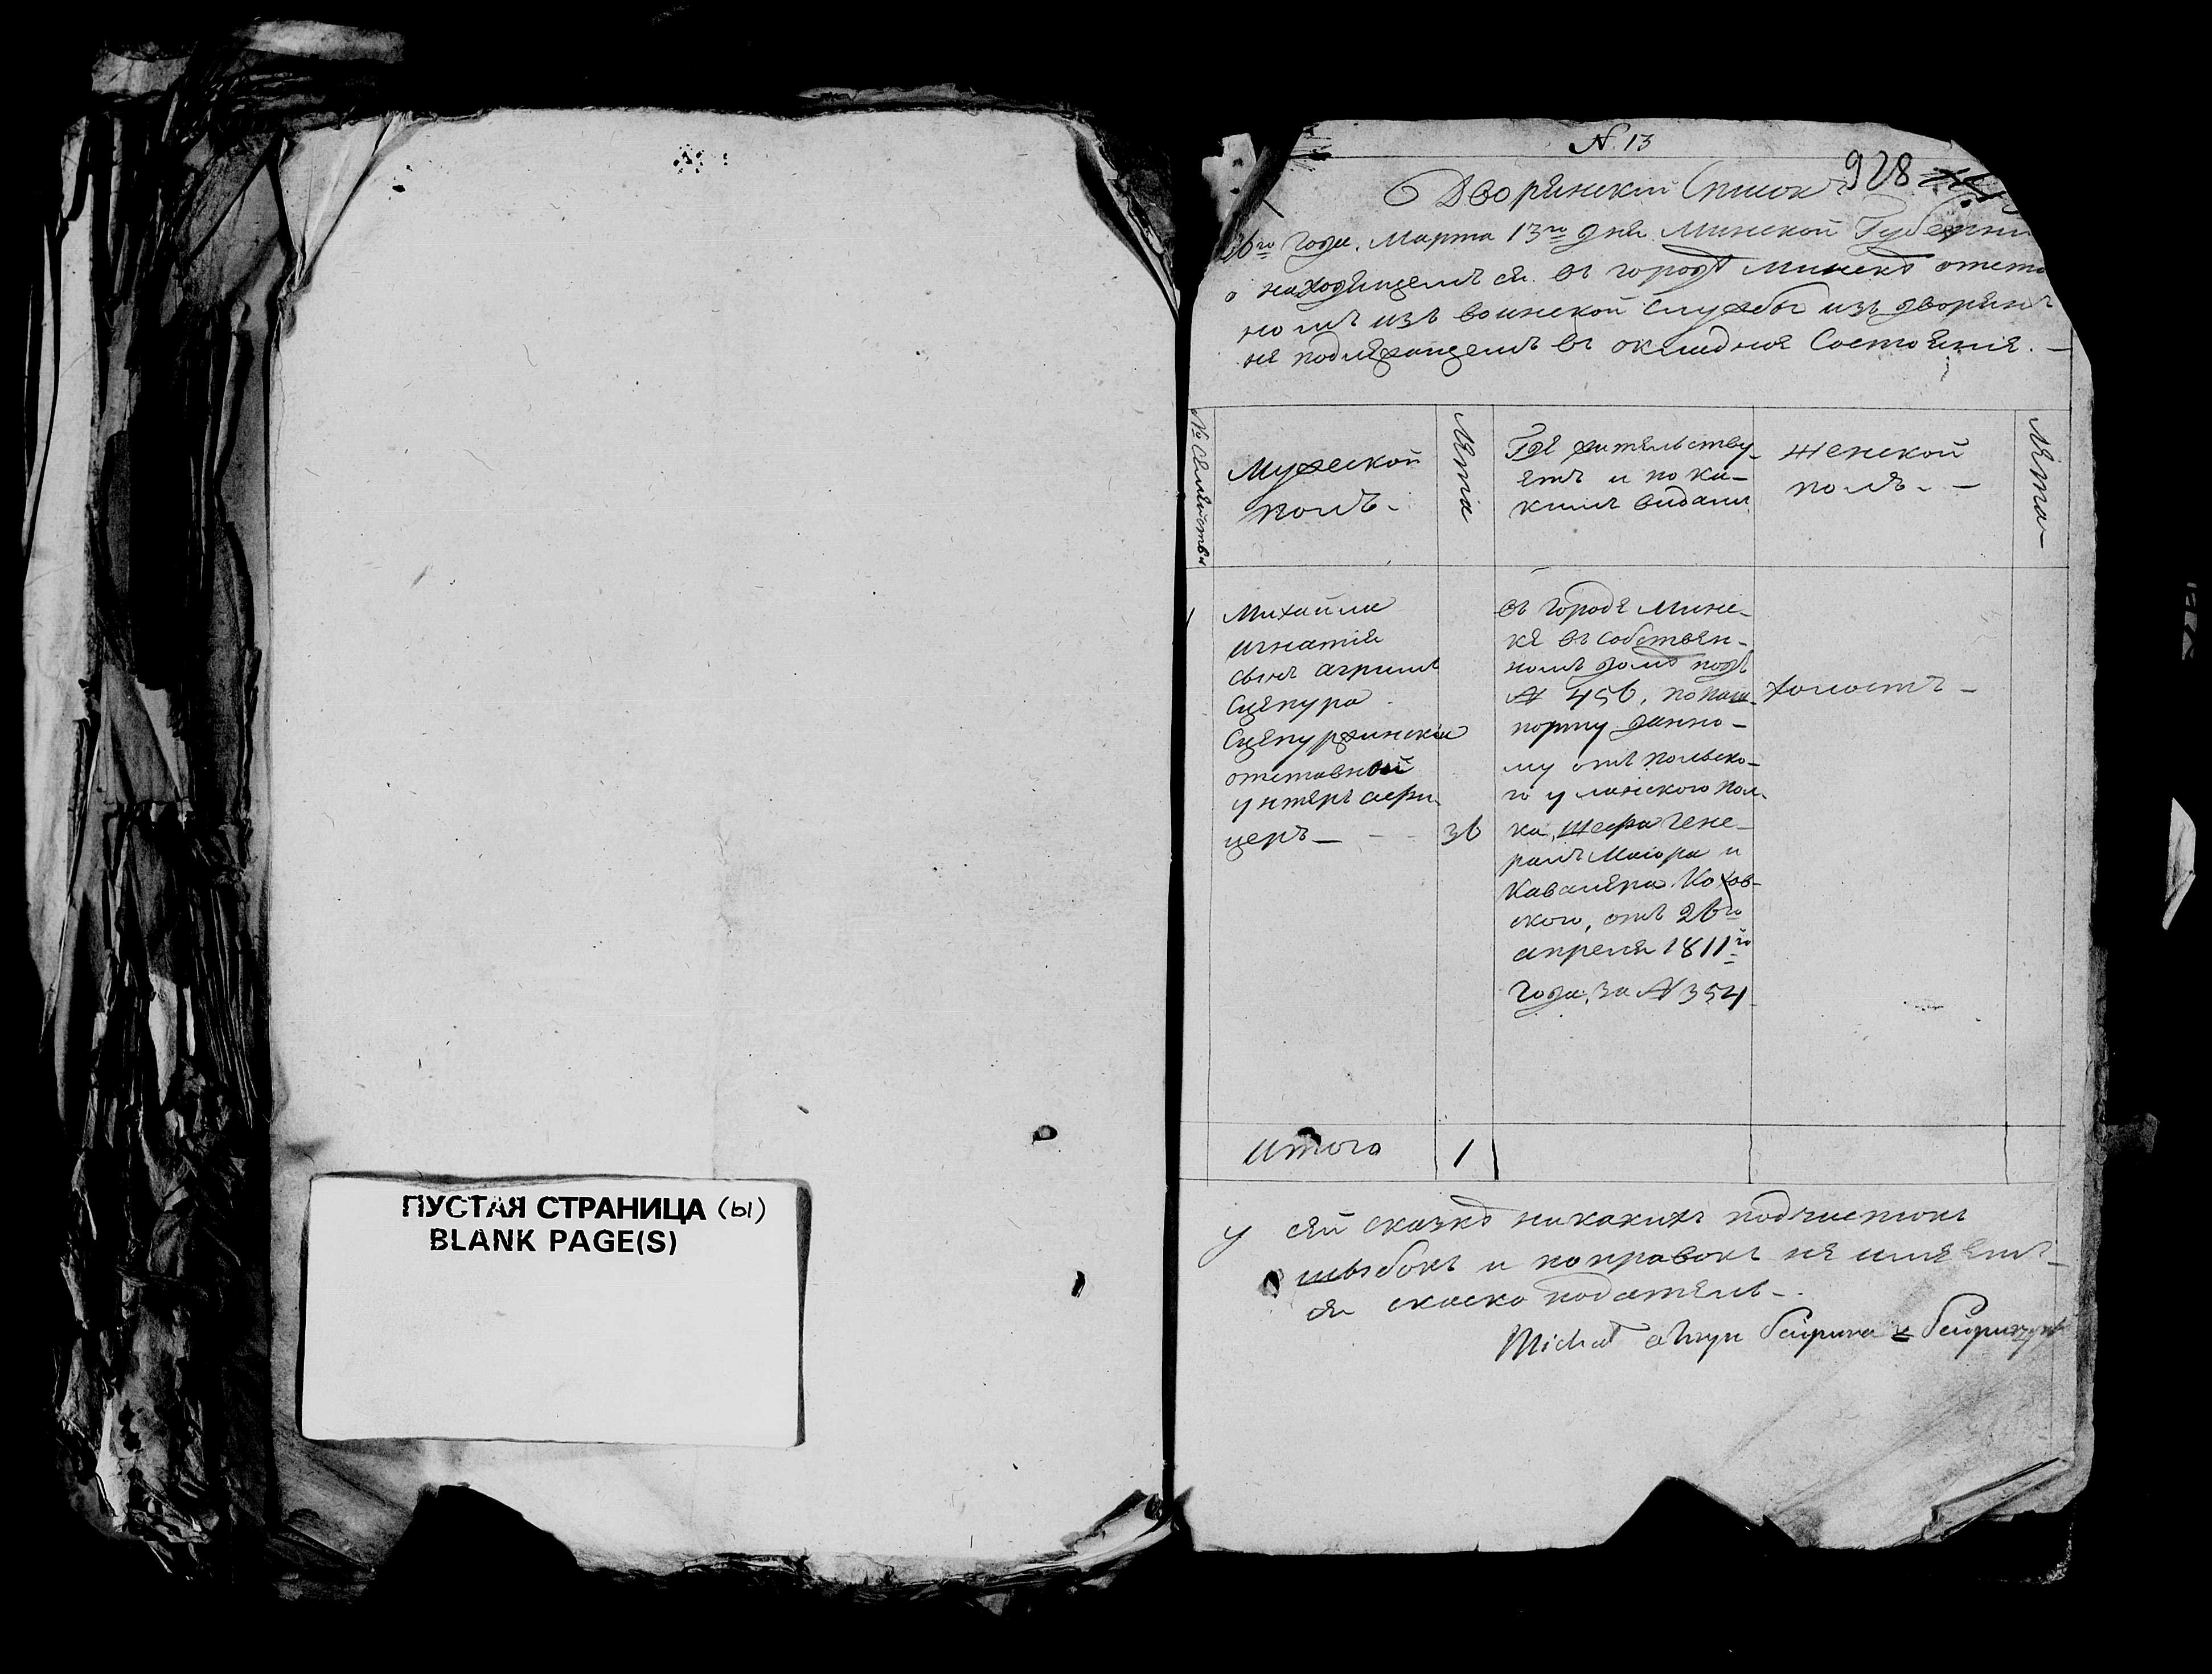 ПУСТАЯ СТРАНИЦА (ы)
BLANK PAGE(S)
N. 13
928
Дворянский Список
6го года. Марта 13го дня Минской Губерни
о находящемъ ся въ городѣ Минскѣ отста
номъ изъ воинской службы изъ дворянъ
не подлежащемъ въ окладное Состояние. —
№ Семейства
Мужеской полъ.
Лета
Где жительству-
етъ и по ка-
кимъ видамъ
Женской
полъ. —
Лета
1
Михайла
Игнатия
сынъ
Сцепура
Сцепуржинский
отставной
унтеръ афи
церъ — 36
въ городе Минс-
ке въ собствен-
номъ доме подъ
№ 456, по паш-
порту данно-
му отъ польско-
го уланского пол-
ка, шефа Гене-
ралъ Маиора и
Кавалера Кохов-
ского, отъ 26го
апреля 1811го
года, за № 354
холостъ —
Итого 1
У сей сказке никакихъ подчистокъ
и поправокъ не имеетъ-
ся скаско податель.
Michał